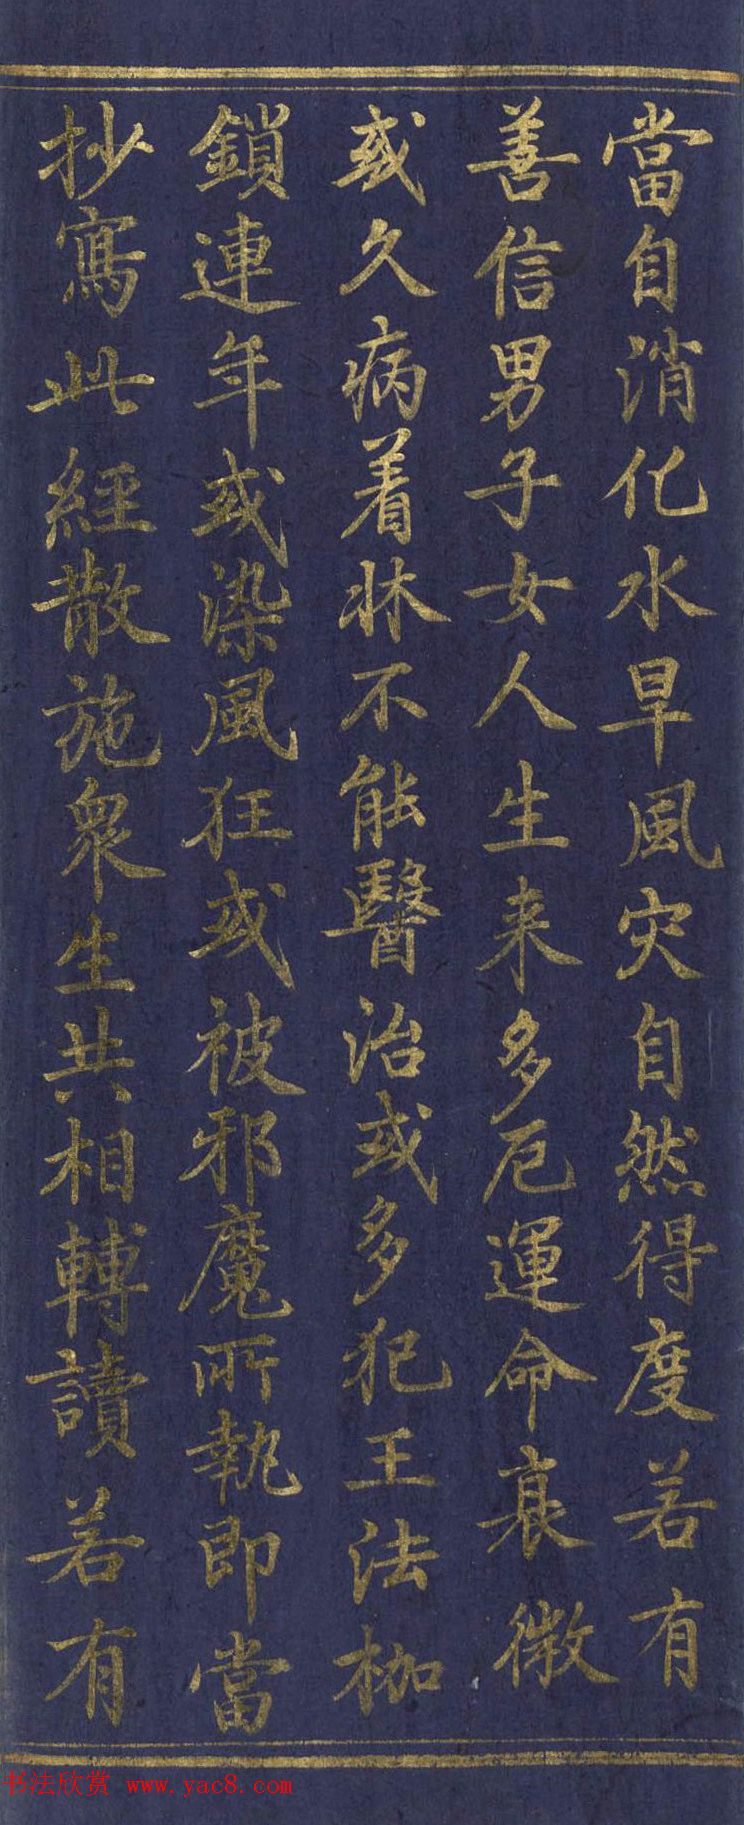 當自消化水旱風灾自然得度若有
善信男子女人生来多厄運命衰微
或久病着牀不能醫治或多犯王法枷
鎖連年或染風狂或被邪魔所執即當
抄寫此經散施衆生共相轉讀若有
书法欣赏 www.yac8.com